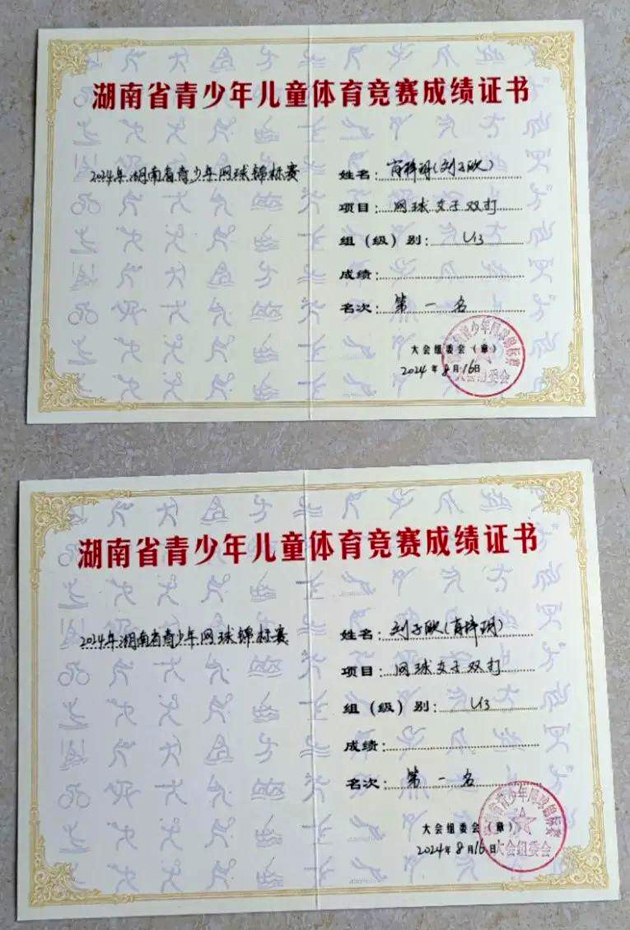 湖南省青少年儿童体育竞赛成绩证书
2024年湖南省青少年网球锦标赛
姓名：肖梓玥（刘子欧）
项目：网球女子双打
组（级）别：U13
成绩：
名次：第一名
大会组委会（章）
2024年8月16日
青少年网球锦标赛
大会组委会
湖南省青少年儿童体育竞赛成绩证书
2024年湖南省青少年网球锦标赛
姓名：刘子欧（肖梓玥）
项目：网球女子双打
组（级）别：U13
成绩：
名次：第一名
大会组委会（章）
2024年8月16日
省青少年网球锦标赛
大会组委会